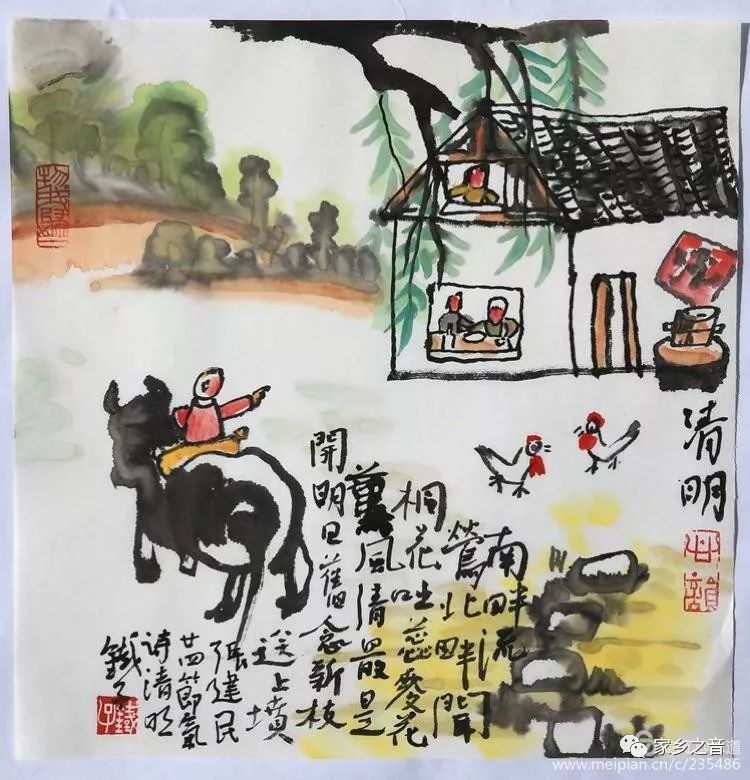 清明
南畔流
鶯北畔聞
桐花吐蕊麥花
薰風清最是
開明日舊念新枝
送上墳
張建民
廿四節氣
詩清明
鐵子
家乡之音
www.meipian.cn/c/235486